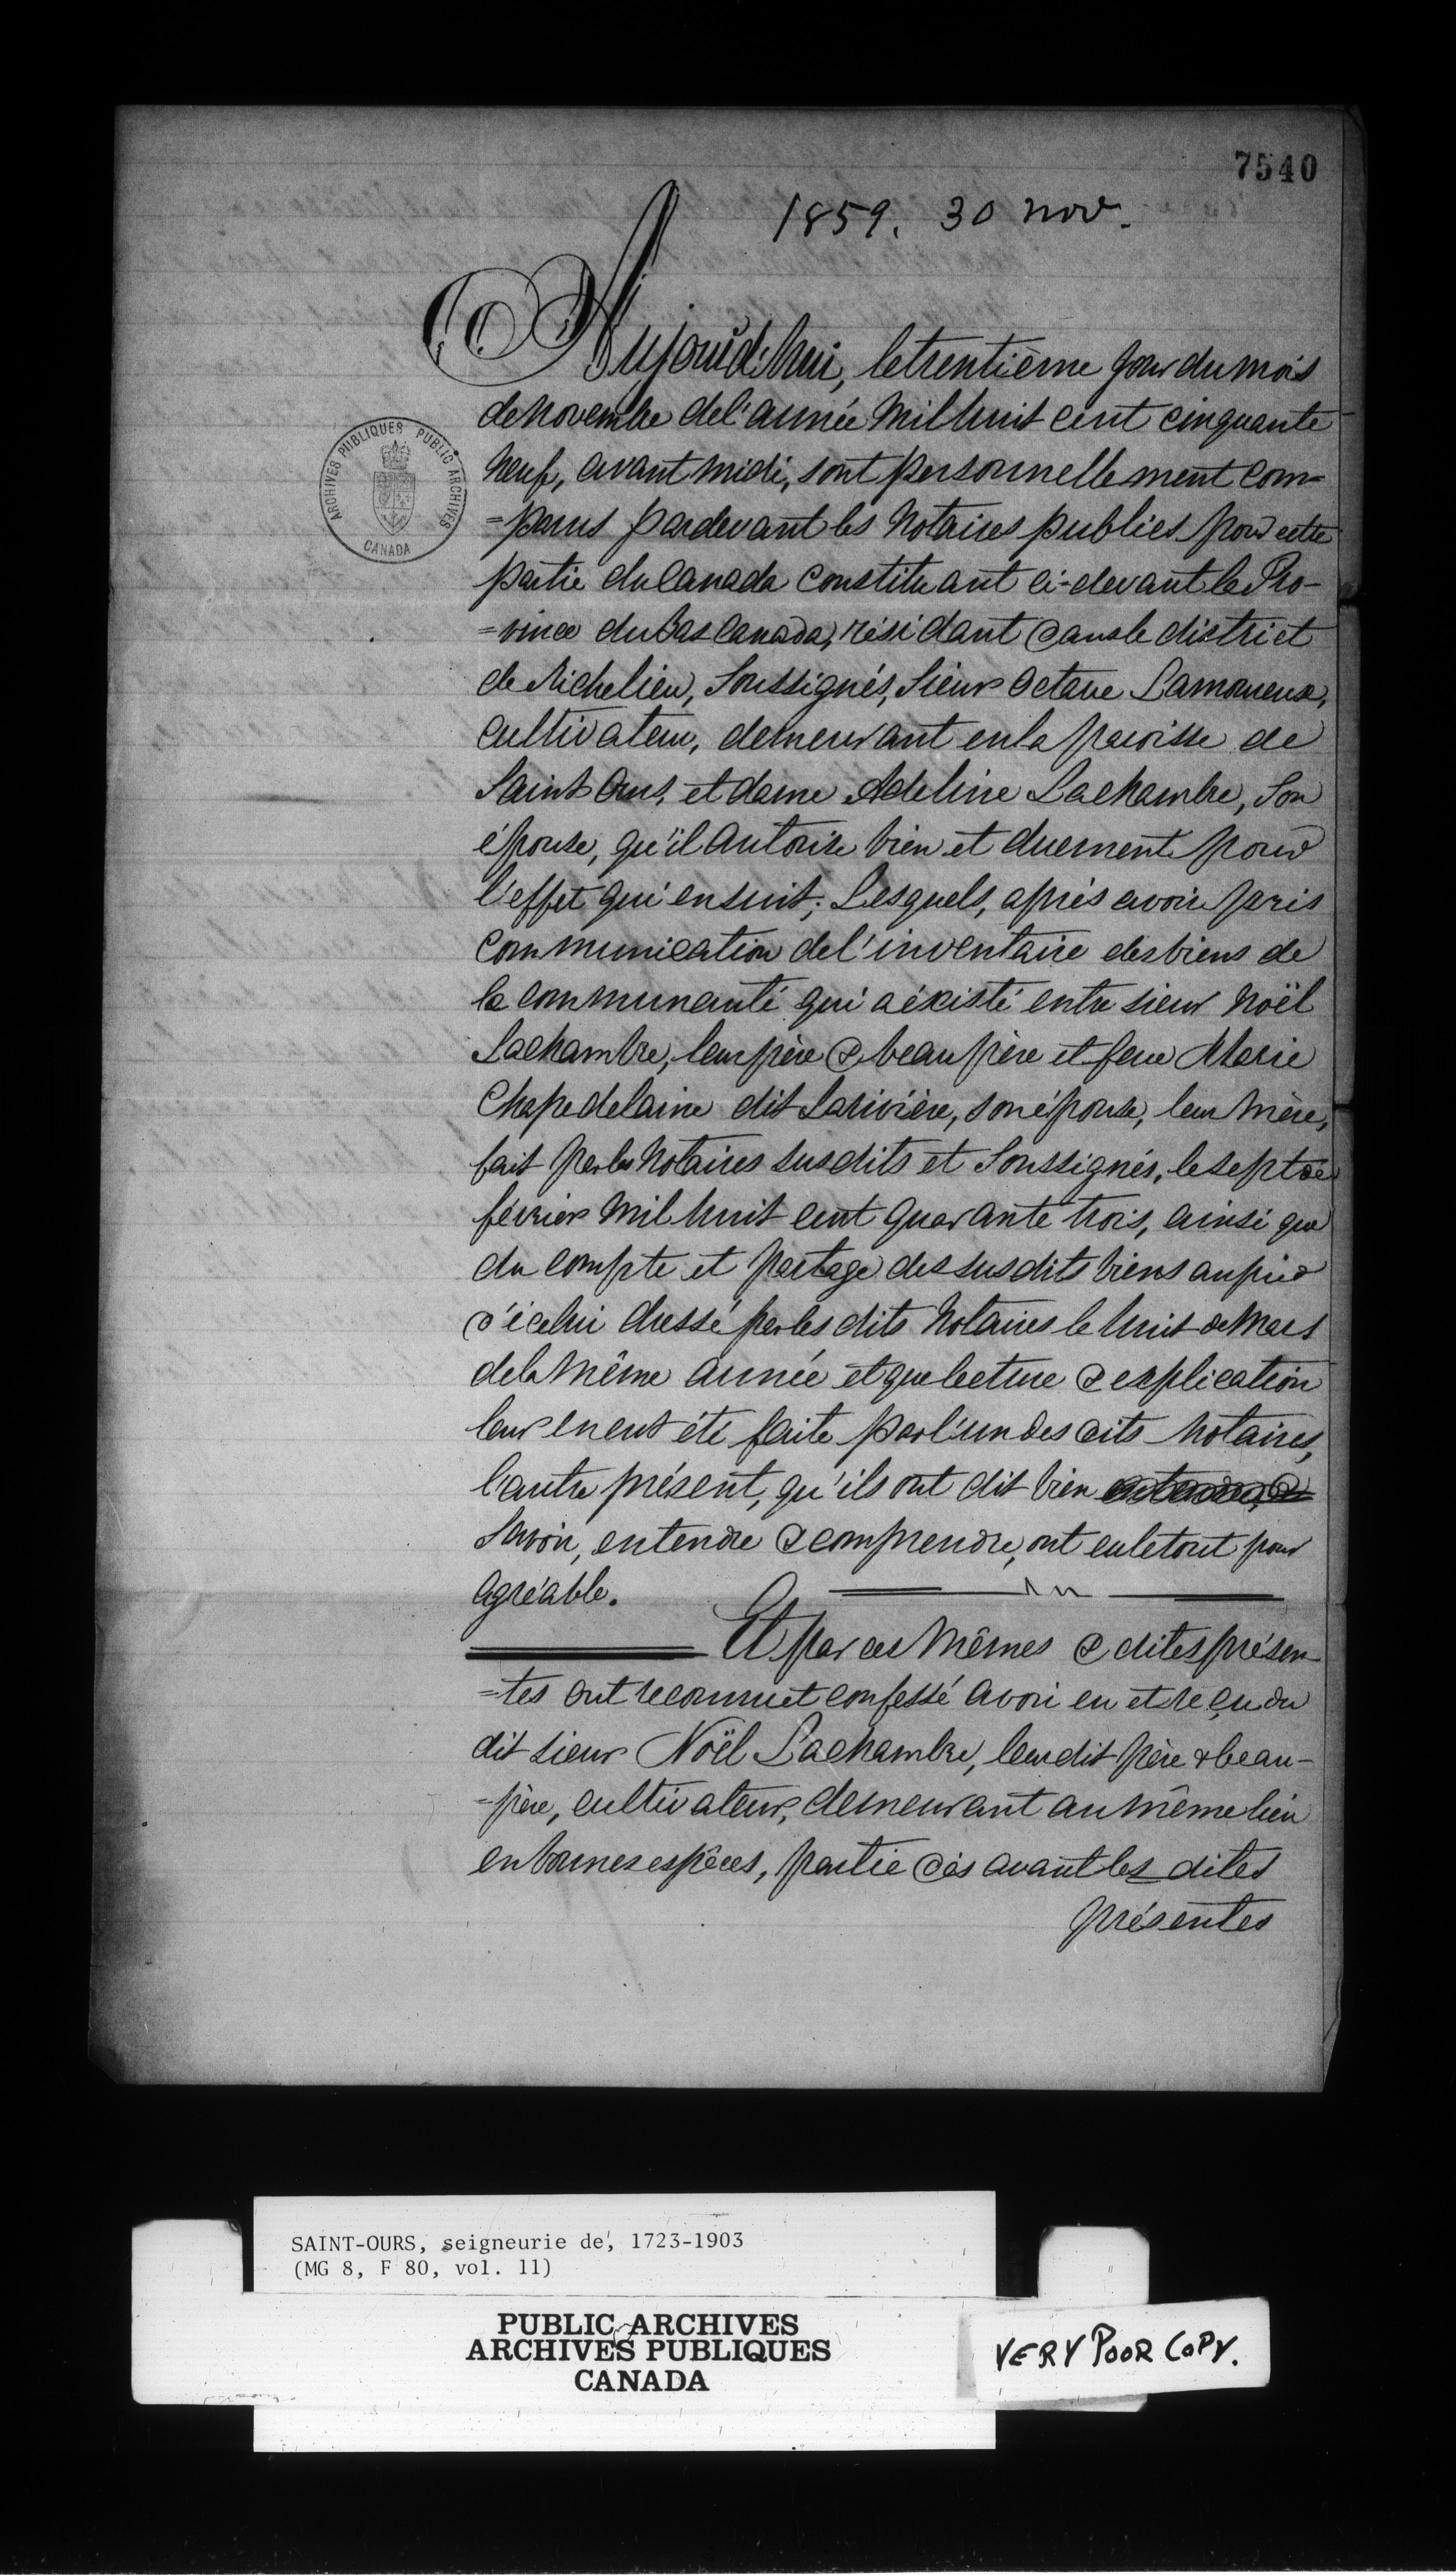 7540
1859. 30 nov.
Aujourd'hui, le trentième jour du mois
de novembre de l'année mil huit cent cinquante
neuf, avant midi, sont personnellement com-
=parus pardevant les Notaires publics pour cette
partie du Canada constituant ci-devant la Pro-
=vince du Bas Canada, résidant dans le district
de Richelieu, Soussignés, Sieur Octave Lamoureux,
cultivateur, demeurant en la paroisse de
Saint Ours, et dame Adeline Lachambre, Son
épouse, qu'il autorise bien et duement pour
l'effet qui ensuit; Lesquels, après avoir pris
communication de l'inventaire des biens de
la communauté qui a éxisté entre sieur Noël
Lachambre, leur père & beau père et feue Marie
Chapedelaine dit Larivière, son épouse, leur mère,
fait par les Notaires susdits et Soussignés, le sept de
février mil huit cent quarante trois, ainsi que
du compte et partage des susdits biens au pied
d'icelui dressé par les dits Notaires le huit de Mars
de la même année et que lecture & explication
leur en eut été faite par l'un des dits Notaires,
l'autre présent, qu'ils ont dit bien
Savoir, entendre & comprendre, ont eu le tout pour
agréable.
Et par ces Mêmes & dites présen-
=tes ont reconnu et confessé avoir eu et reçu du
dit sieur Noël Lachambre, leur dit père & beau-
=père, cultivateur, demeurant au même lieu
en bonnes espèces, partie dès avant les dites
présentes
ARCHIVES PUBLIQUES PUBLIC ARCHIVES
CANADA
SAINT-OURS, seigneurie de, 1723-1903
(MG 8, F 80, vol. 11)
PUBLIC ARCHIVES
ARCHIVES PUBLIQUES
CANADA
VERY POOR COPY.